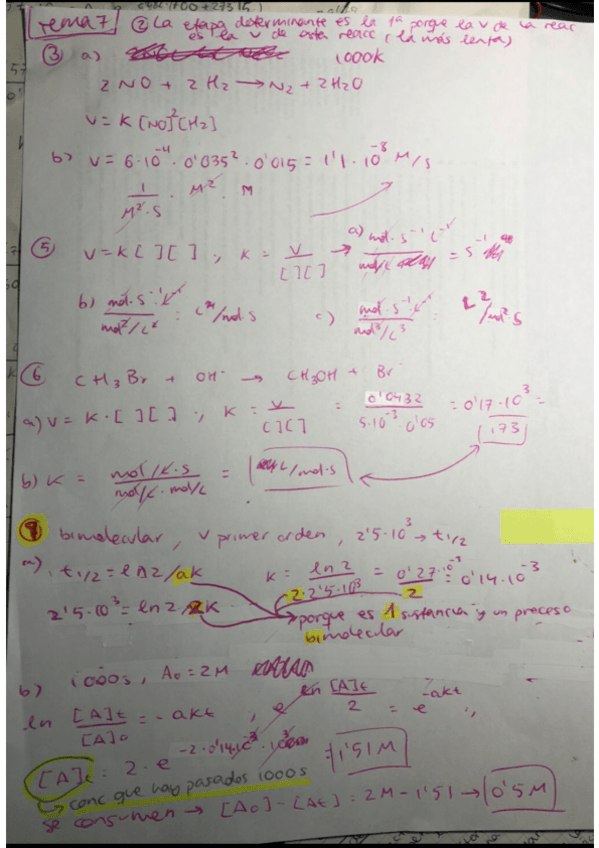 tema 7 ② La etapa determinante es la 1ª porque la v de la reac
es la v de esta reacc (la más lenta)
③ a) 1000K
2 NO + 2 H₂ → N₂ + 2H₂O
v = K [NO]² [H₂]
b) v = 6·10⁻⁴ · 0'035² · 0'015 = 1'1 · 10⁻⁸ M/s
1/M²·s · M² · M
⑤ v = K [ ][ ] , K = v/[ ][ ] → a) mol·s⁻¹ L⁻¹/mol/L = s⁻¹
b) mol·s⁻¹·L⁻¹/mol²/L² = L/mol·s c) mol·s⁻¹·L⁻¹/mol³/L³ = L²/mol²·s
⑥ CH₃Br + OH⁻ → CH₃OH + Br
a) v = K·[ ][ ] , K = v/[ ][ ] = 0'0432/5·10⁻³·0'05 = 0'17·10³ =
173
b) K = mol/L·s/mol/L·mol/L = L/mol·s
⑨ bimolecular, v primer orden, 2'5·10³ → t1/2
a) t1/2 = ln2/ak K = ln 2/2·2'5·10³ = 0'27·10⁻³/2 = 0'14·10⁻³
2'5·10³ = ln2/2K
porque es 1 sustancia y un proceso
bimolecular
b) 1000s, A₀ = 2M
ln [A]t/[A]₀ = -akt , e ln [A]t/2 = e -akt ,,
[A]t = 2 · e -2·0'14·10⁻³·10³ = 1'51 M
conc que hay pasados 1000s
se consumen → [A₀] - [At] = 2M - 1'51 → 0'5M